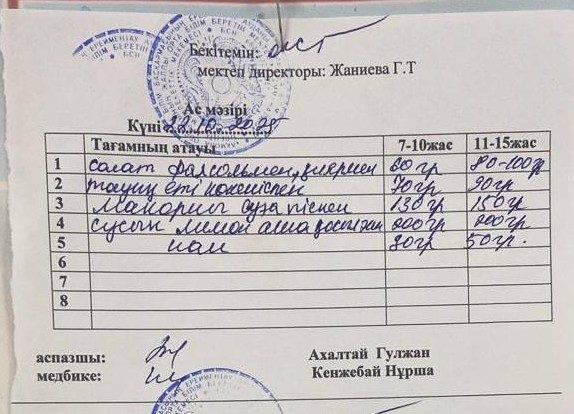 Бекітемін:
мектеп директоры: Жаниева Г.Т
Ас мәзірі
Күні 22.10.2025
Тағамның атауы 7-10жас 11-15жас
1 салат фасольмен, сиырмен 60гр 80-100гр
2 тауық еті көкөніспен 70гр 90гр
3 Макороны суға піскен 130гр 150гр
4 сусын лимон алма қосылған 200гр 200гр
5 нан 30гр 50гр.
6
7
8
аспазшы: Ахалтай Гулжан
медбике: Кенжебай Нұрша